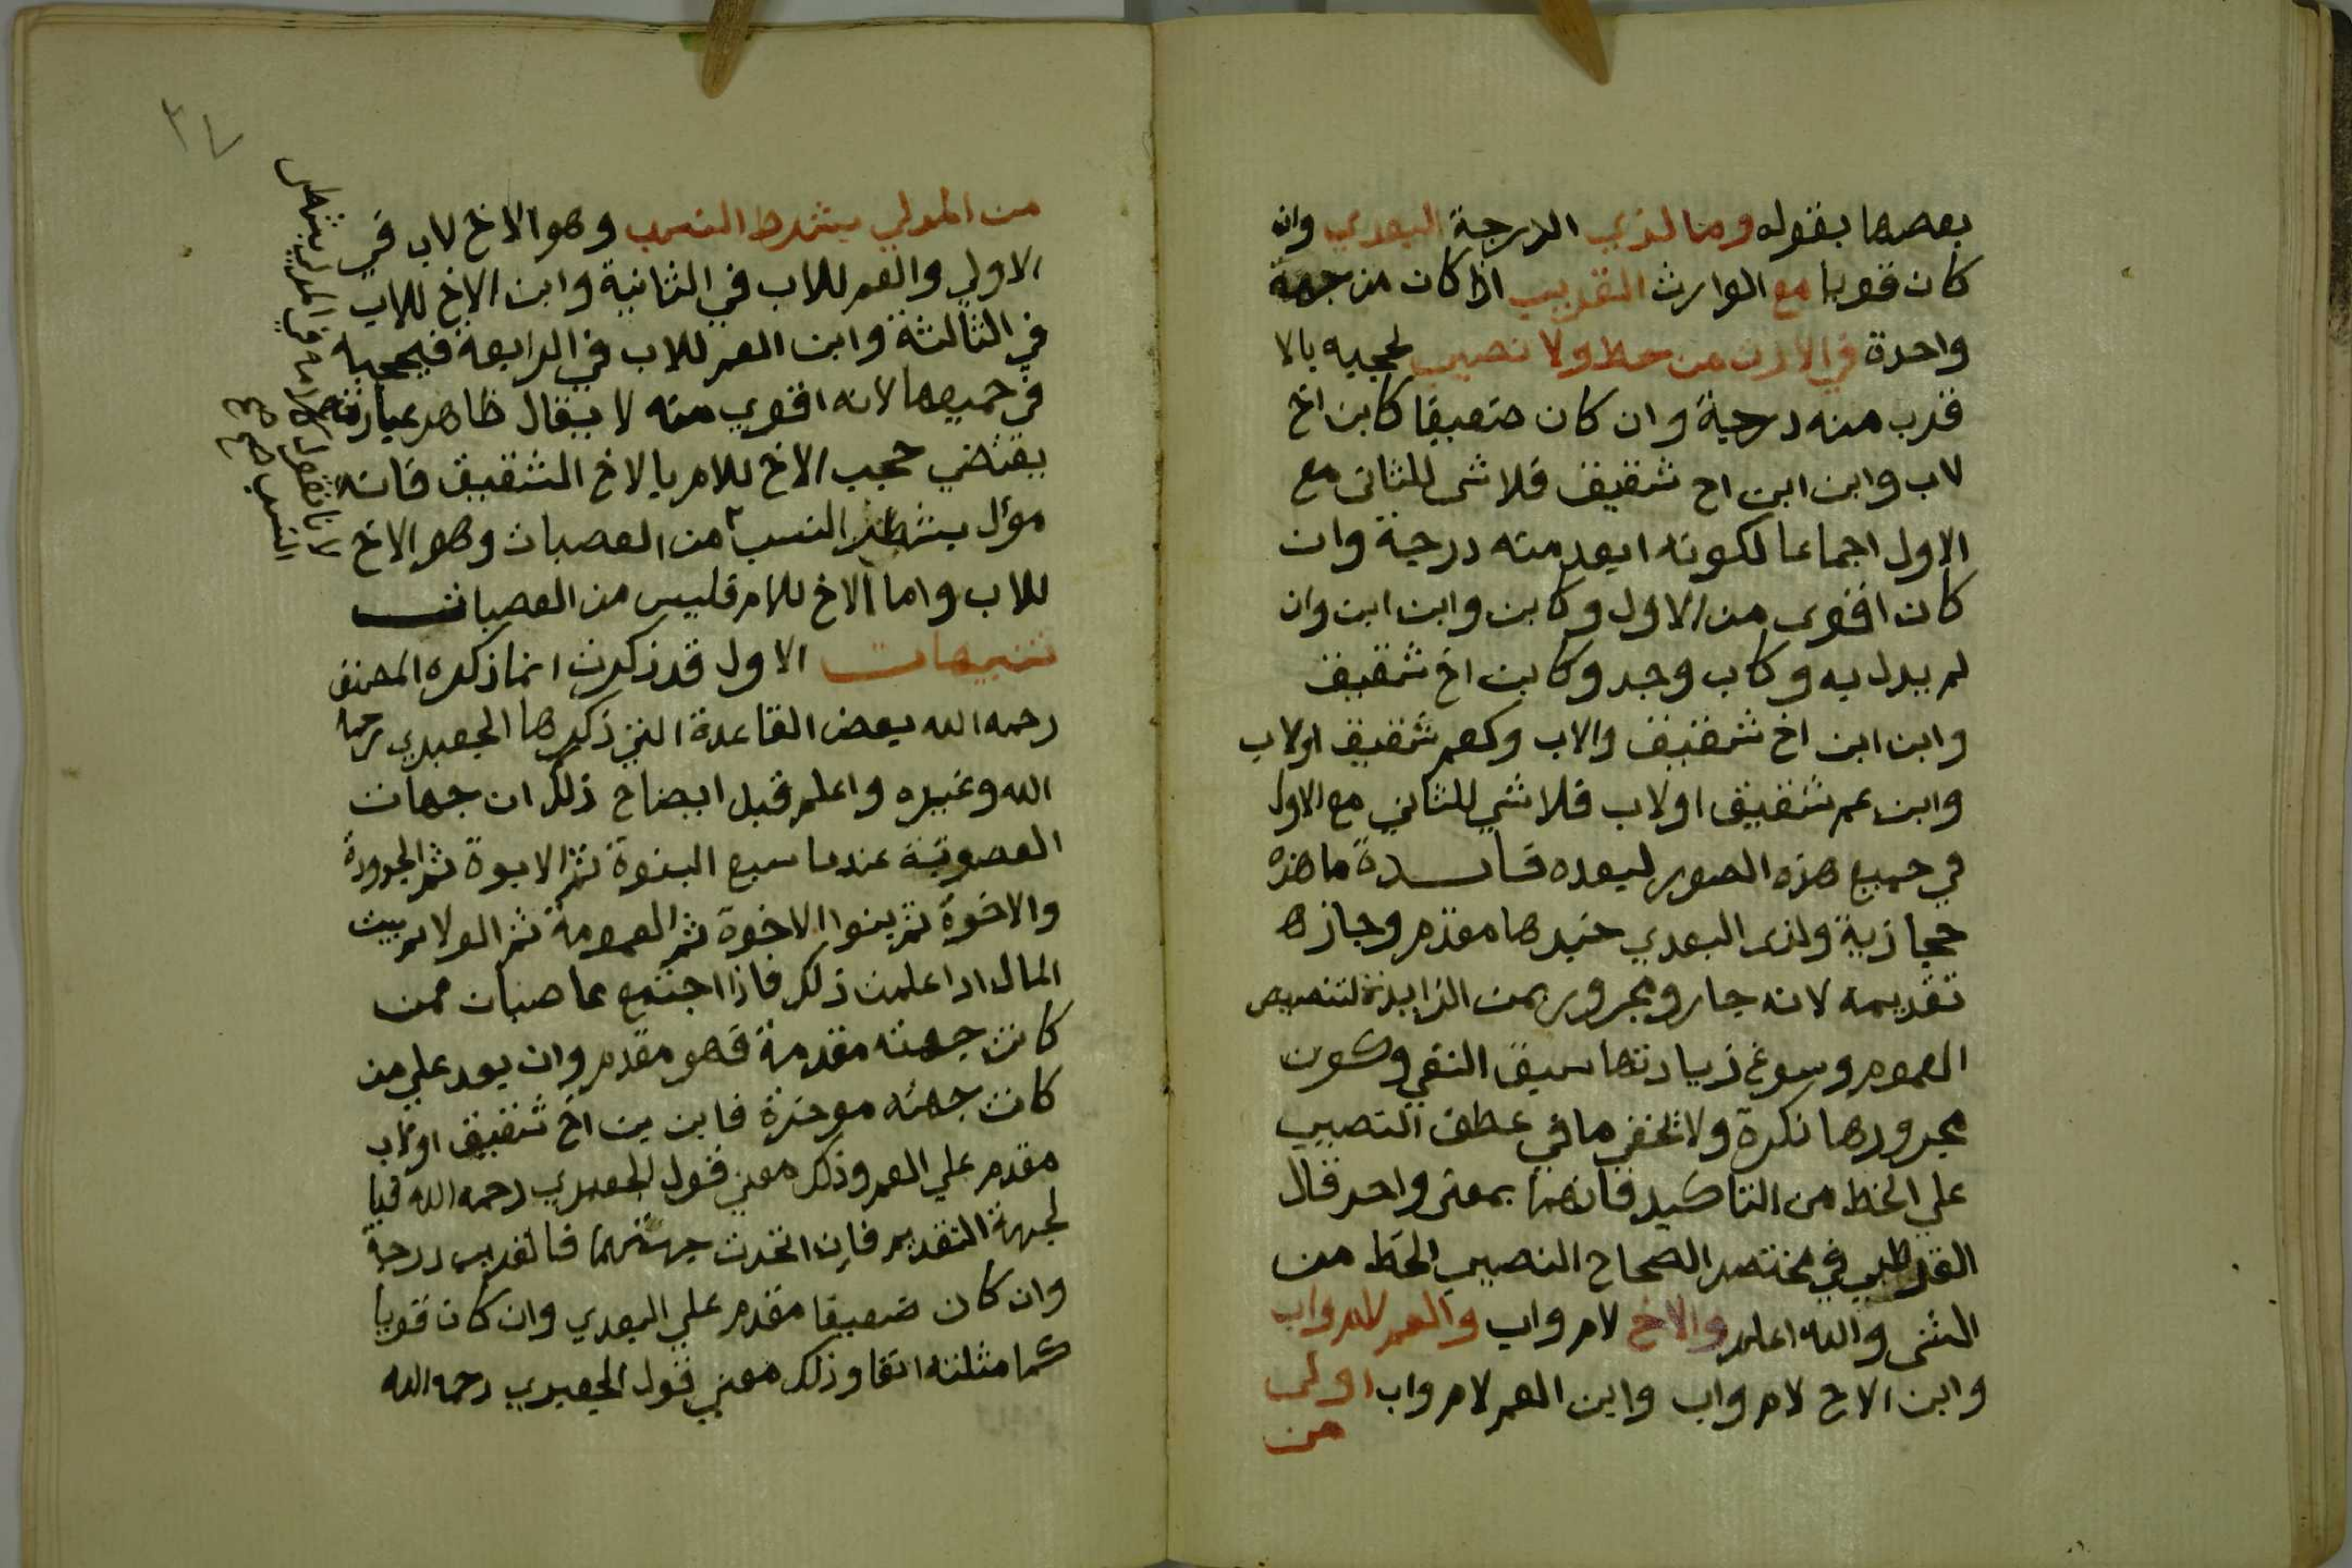 بعضها بقوله وما لذي الدرجة البعدي وان
كان قويا مع الوارث القريب اذا كان من جهة
واحدة في الارث من حظ ولا نصيب لحجبه بالا
قرب منه درجة وان كان ضعيفا كابن اخ
لاب وابن ابن اخ شقيق فلا شى للثانى مع
الاول اجماعا لكونه ابعد منه درجة وان
كان اقوى من الاول وكابن وابن ابن وان
لم يدل به وكاب وجد وكابن اخ شقيق
وابن ابن اخ شقيق والاب وكعم شقيق اولاب
وابن عم شقيق اولاب فلا شي للثاني مع الاول
في جميع هذه الصور لبعده فايدة ما هذه
حجازية ولذى البعدي خبرها مقدم وجاز ها
تقديمه لانه جار ومجرور بمن الزايدة لتنصيص
العموم وسوغ زيادتها سبق النفي وكون
مجرورها نكرة ولا تخفي ما في عطف النصيب
علي الحظ من التاكيد فانهما بمعنى واحد قال
القرطبي في مختصر الصحاح النصيب الحظ من
الشى والله اعلم والاخ لام واب والعم لام واب
وابن الاخ لام واب وابن العم لام واب اولى
من
٣٧
من المدلي بشطر النسب وهو الاخ لاب في
الاولي والعم للاب في الثانية وابن الاخ للاب
في الثالثة وابن العم للاب في الرابعة فيحجبه
في جميعها لانه اقوي منه لا يقال ظاهر عبارته
يقتضي حجب الاخ للام بالاخ الشقيق فانه
موٴل بشطر النسب من العصبات وهو الاخ
للاب واما الاخ للام فليس من العصبات
تنبيهات الاول قد ذكرت انما ذكره المصنف
رحمه الله بعض القاعدة التي ذكرها الجعبري رحمه
الله وغيره واعلم قبل ايضاح ذلك ان جهات
العصوبة عندنا سبع البنوة ثم الابوة ثم الجدودة
والاخوة ثم بنوا الاخوة ثم العمومة ثم الولا ثم بيت
المال اذا علمت ذلك فاذا اجتمع عاصبات فمن
كانت جهته مقدمة فهو مقدم وان بعد علي من
كانت جهته موخرة فابن بن اخ شقيق اولاب
مقدم علي العم وذلك معني قول الجعبري رحمه الله فبا
لجهة التقديم فان اتحدت جهتهما فالقريب درجة
وان كان ضعيفا مقدم علي البعدي وان كان قويا
كما مثلته انفا وذلك معني قول الجعبري رحمه الله
لانا نقول كلامه في المدلي بشطر
النسب صح